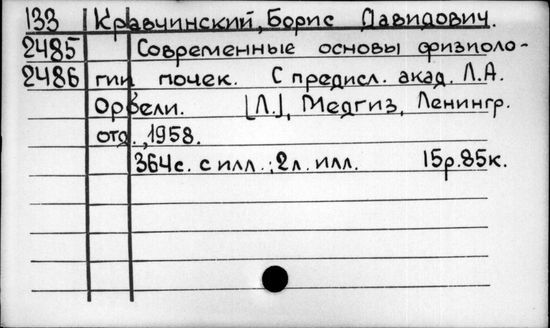 133 Кравчинский, Борис Давидович.
2485 Современные основы физиоло-
2486 гии почек. С предисл. акад. Л.А.
Орбели. [Л.], Медгиз, Ленингр.
отд., 1958.
364с. с илл.; 2л. илл. 15р.85к.